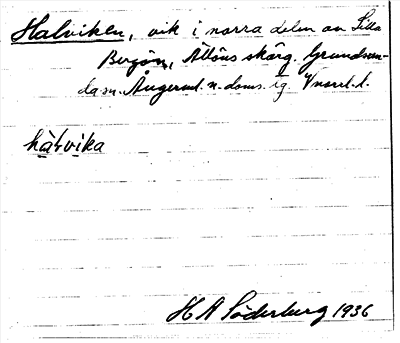 Halviken, vik i norra delen av Lilla
Bergön, Åstöns skärg. Grundsun-
da sn. Ångerml. n. doms. tg. Vnorrl. l.
hàlvika
H A Söderberg 1936